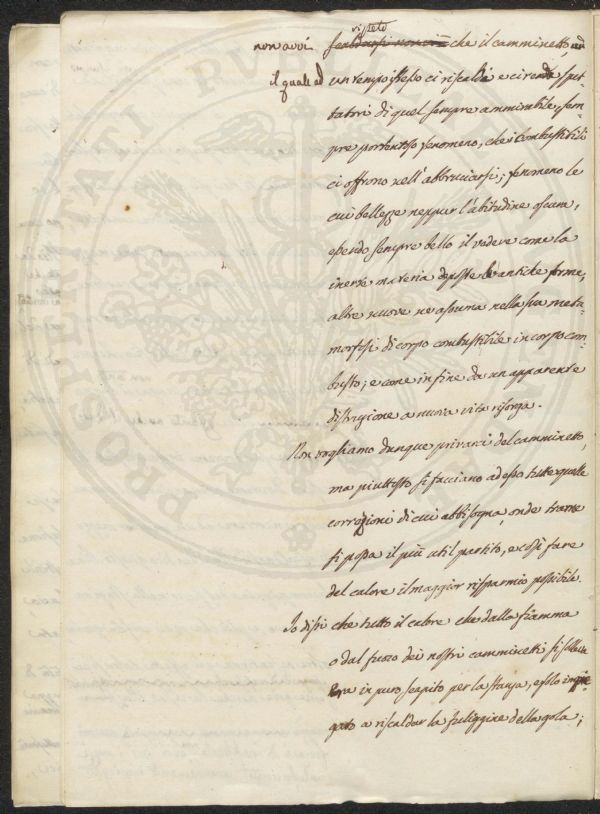 ripeto
non avvi scaldarsi non che il camminetto, ed
il quale ad un tempo stesso ci riscaldi e ci renda spet-
tatori di quel sempre ammirabile, sem-
pre portentoso fenomeno, che i combustibili
ci offrono nell'abbruciarsi; fenomeno le
cui bellezze neppur l'abitudine oscura,
essendo sempre bello il vedere come la
inerte materia deposte le antiche forme,
altre nuove ne assuma nella sua meta-
morfosi di corpo combustibile in corpo com-
busto; e come in fine da un apparente
distruzione a nuova vita risorga.
Non vogliamo dunque privarci del camminetto,
ma piuttosto si facciano ad esso tutte quelle
correzioni di cui abbisogna, onde trarne
si possa il più util partito, e così fare
del calore il maggior risparmio possibile.
Io dissi che tutto il calore che dalla fiamma
o dal fuoco dei nostri camminetti si solleva
era in puro scapito per la stanza, e solo impie-
gato a riscaldar la fuliggine della gola;